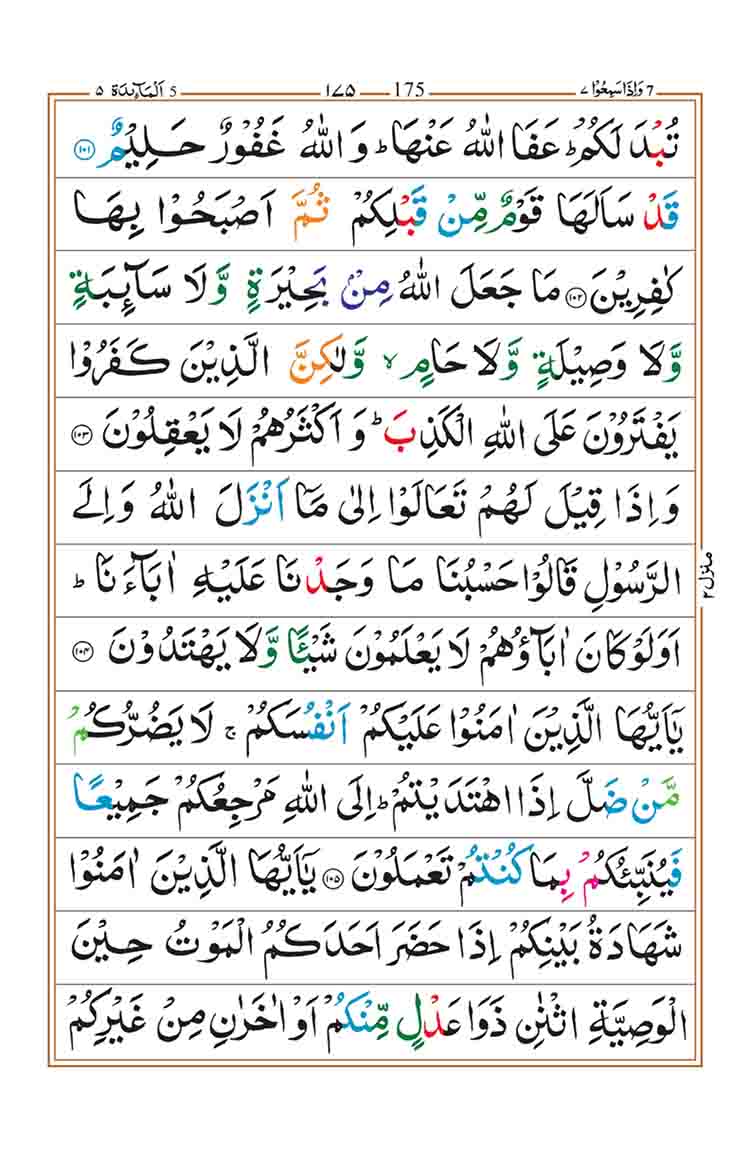 وَاِذَا سَمِعُوْا ٧ 7 175 ١٧٥ 5 اَلْمَآئِدَة ٥
تُبْدَ لَكُمْ ؕ عَفَا اللّٰهُ عَنْهَا ؕ وَ اللّٰهُ غَفُوْرٌ حَلِيْمٌ ۝١٠١
قَدْ سَاَلَهَا قَوْمٌ مِّنْ قَبْلِكُمْ ثُمَّ اَصْبَحُوْا بِهَا
كٰفِرِيْنَ ۝١٠٢ مَا جَعَلَ اللّٰهُ مِنْۢ بَحِيْرَةٍ وَّلَا سَآئِبَةٍ
وَّلَا وَصِيْلَةٍ وَّلَا حَامٍ ۙ وَّلٰكِنَّ الَّذِيْنَ كَفَرُوْا
يَفْتَرُوْنَ عَلَى اللّٰهِ الْكَذِبَ ؕ وَ اَكْثَرُهُمْ لَا يَعْقِلُوْنَ ۝١٠٣
وَ اِذَا قِيْلَ لَهُمْ تَعَالَوْا اِلٰى مَاۤ اَنْزَلَ اللّٰهُ وَ اِلَى
الرَّسُوْلِ قَالُوْا حَسْبُنَا مَا وَجَدْنَا عَلَيْهِ اٰبَآءَنَا ؕ
اَوَلَوْ كَانَ اٰبَآؤُهُمْ لَا يَعْلَمُوْنَ شَيْـًٔا وَّلَا يَهْتَدُوْنَ ۝١٠٤
يٰۤاَيُّهَا الَّذِيْنَ اٰمَنُوْا عَلَيْكُمْ اَنْفُسَكُمْ ۚ لَا يَضُرُّكُمْ
مَّنْ ضَلَّ اِذَا اهْتَدَيْتُمْ ؕ اِلَى اللّٰهِ مَرْجِعُكُمْ جَمِيْعًا
فَيُنَبِّئُكُمْ بِمَا كُنْتُمْ تَعْمَلُوْنَ ۝١٠٥ يٰۤاَيُّهَا الَّذِيْنَ اٰمَنُوْا
شَهَادَةُ بَيْنِكُمْ اِذَا حَضَرَ اَحَدَكُمُ الْمَوْتُ حِيْنَ
الْوَصِيَّةِ اثْنٰنِ ذَوَا عَدْلٍ مِّنْكُمْ اَوْ اٰخَرٰنِ مِنْ غَيْرِكُمْ
منزل ٢